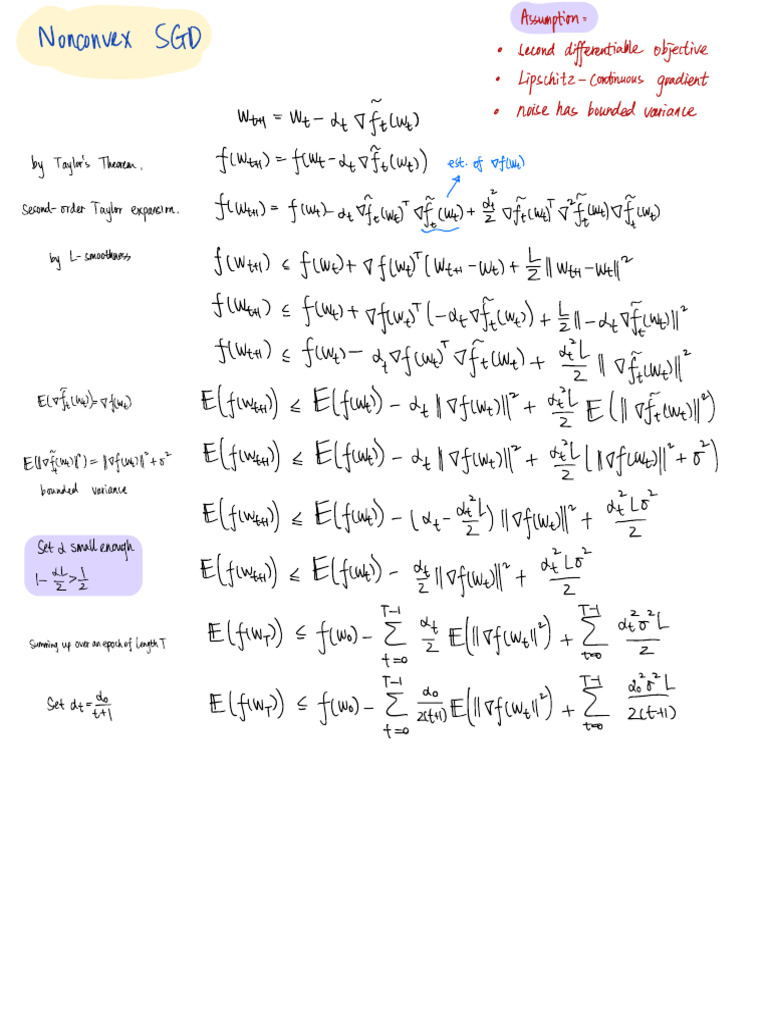 Nonconvex SGD
Assumption:
• second differentiable objective
• Lipschitz-continuous gradient
• noise has bounded variance
w_{t+1} = w_t - α_t ∇f̃_t(w_t)
by Taylor's Theorem, f(w_{t+1}) = f(w_t - α_t ∇f̃_t(w_t)) est. of ∇f(w_t)
Second-order Taylor expansion. f(w_{t+1}) = f(w_t) - α_t ∇f̃_t(w_t)^T ∇f̃_t(w_t) + α_t²/2 ∇f̃_t(w_t)^T ∇²f̃_t(w_t) ∇f̃_t(w_t)
by L-smoothness f(w_{t+1}) ≤ f(w_t) + ∇f(w_t)^T (w_{t+1} - w_t) + L/2 ‖w_{t+1} - w_t‖²
f(w_{t+1}) ≤ f(w_t) + ∇f(w_t)^T (-α_t ∇f̃_t(w_t)) + L/2 ‖-α_t ∇f̃_t(w_t)‖²
f(w_{t+1}) ≤ f(w_t) - α_t ∇f(w_t)^T ∇f̃_t(w_t) + α_t² L/2 ‖∇f̃_t(w_t)‖²
E(∇f̃_t(w_t)) = ∇f(w_t) E(f(w_{t+1})) ≤ E(f(w_t)) - α_t ‖∇f(w_t)‖² + α_t² L/2 E(‖∇f̃_t(w_t)‖²)
E(‖∇f̃_t(w_t)‖²) = ‖∇f(w_t)‖² + σ² E(f(w_{t+1})) ≤ E(f(w_t)) - α_t ‖∇f(w_t)‖² + α_t² L/2 (‖∇f(w_t)‖² + σ²)
bounded variance
E(f(w_{t+1})) ≤ E(f(w_t)) - (α_t - α_t² L/2) ‖∇f(w_t)‖² + α_t² L σ²/2
Set α small enough
1 - αL/2 > 1/2 E(f(w_{t+1})) ≤ E(f(w_t)) - α_t/2 ‖∇f(w_t)‖² + α_t² L σ²/2
Summing up over an epoch of length T E(f(w_T)) ≤ f(w_0) - Σ_{t=0}^{T-1} α_t/2 E(‖∇f(w_t‖²) + Σ_{t=0}^{T-1} α_t² σ² L/2
Set α_t = α_0/t+1 E(f(w_T)) ≤ f(w_0) - Σ_{t=0}^{T-1} α_0/2(t+1) E(‖∇f(w_t‖²) + Σ_{t=0}^{T-1} α_0² σ² L/2(t+1)